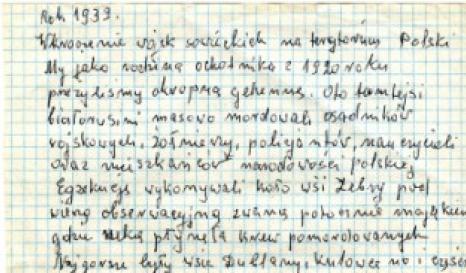 Rok 1939.
Wkroczenie wojsk sowieckich na terytorium Polski
My jako rodzina ochotnika z 1920 roku
przeżyliśmy okropną gehennę. Oto tamtejsi
białorusini masowo mordowali osadników
wojskowych, żołnierzy, policjantów, nauczycieli
oraz mieszkańców narodowości polskiej
Egzekucje wykonywali koło wsi Żebry pod
wieżą obserwacyjną zwaną potocznie
gdzie rzeką płynęła krew pomordowanych
Najgorsze były wsie Dublany, no i część